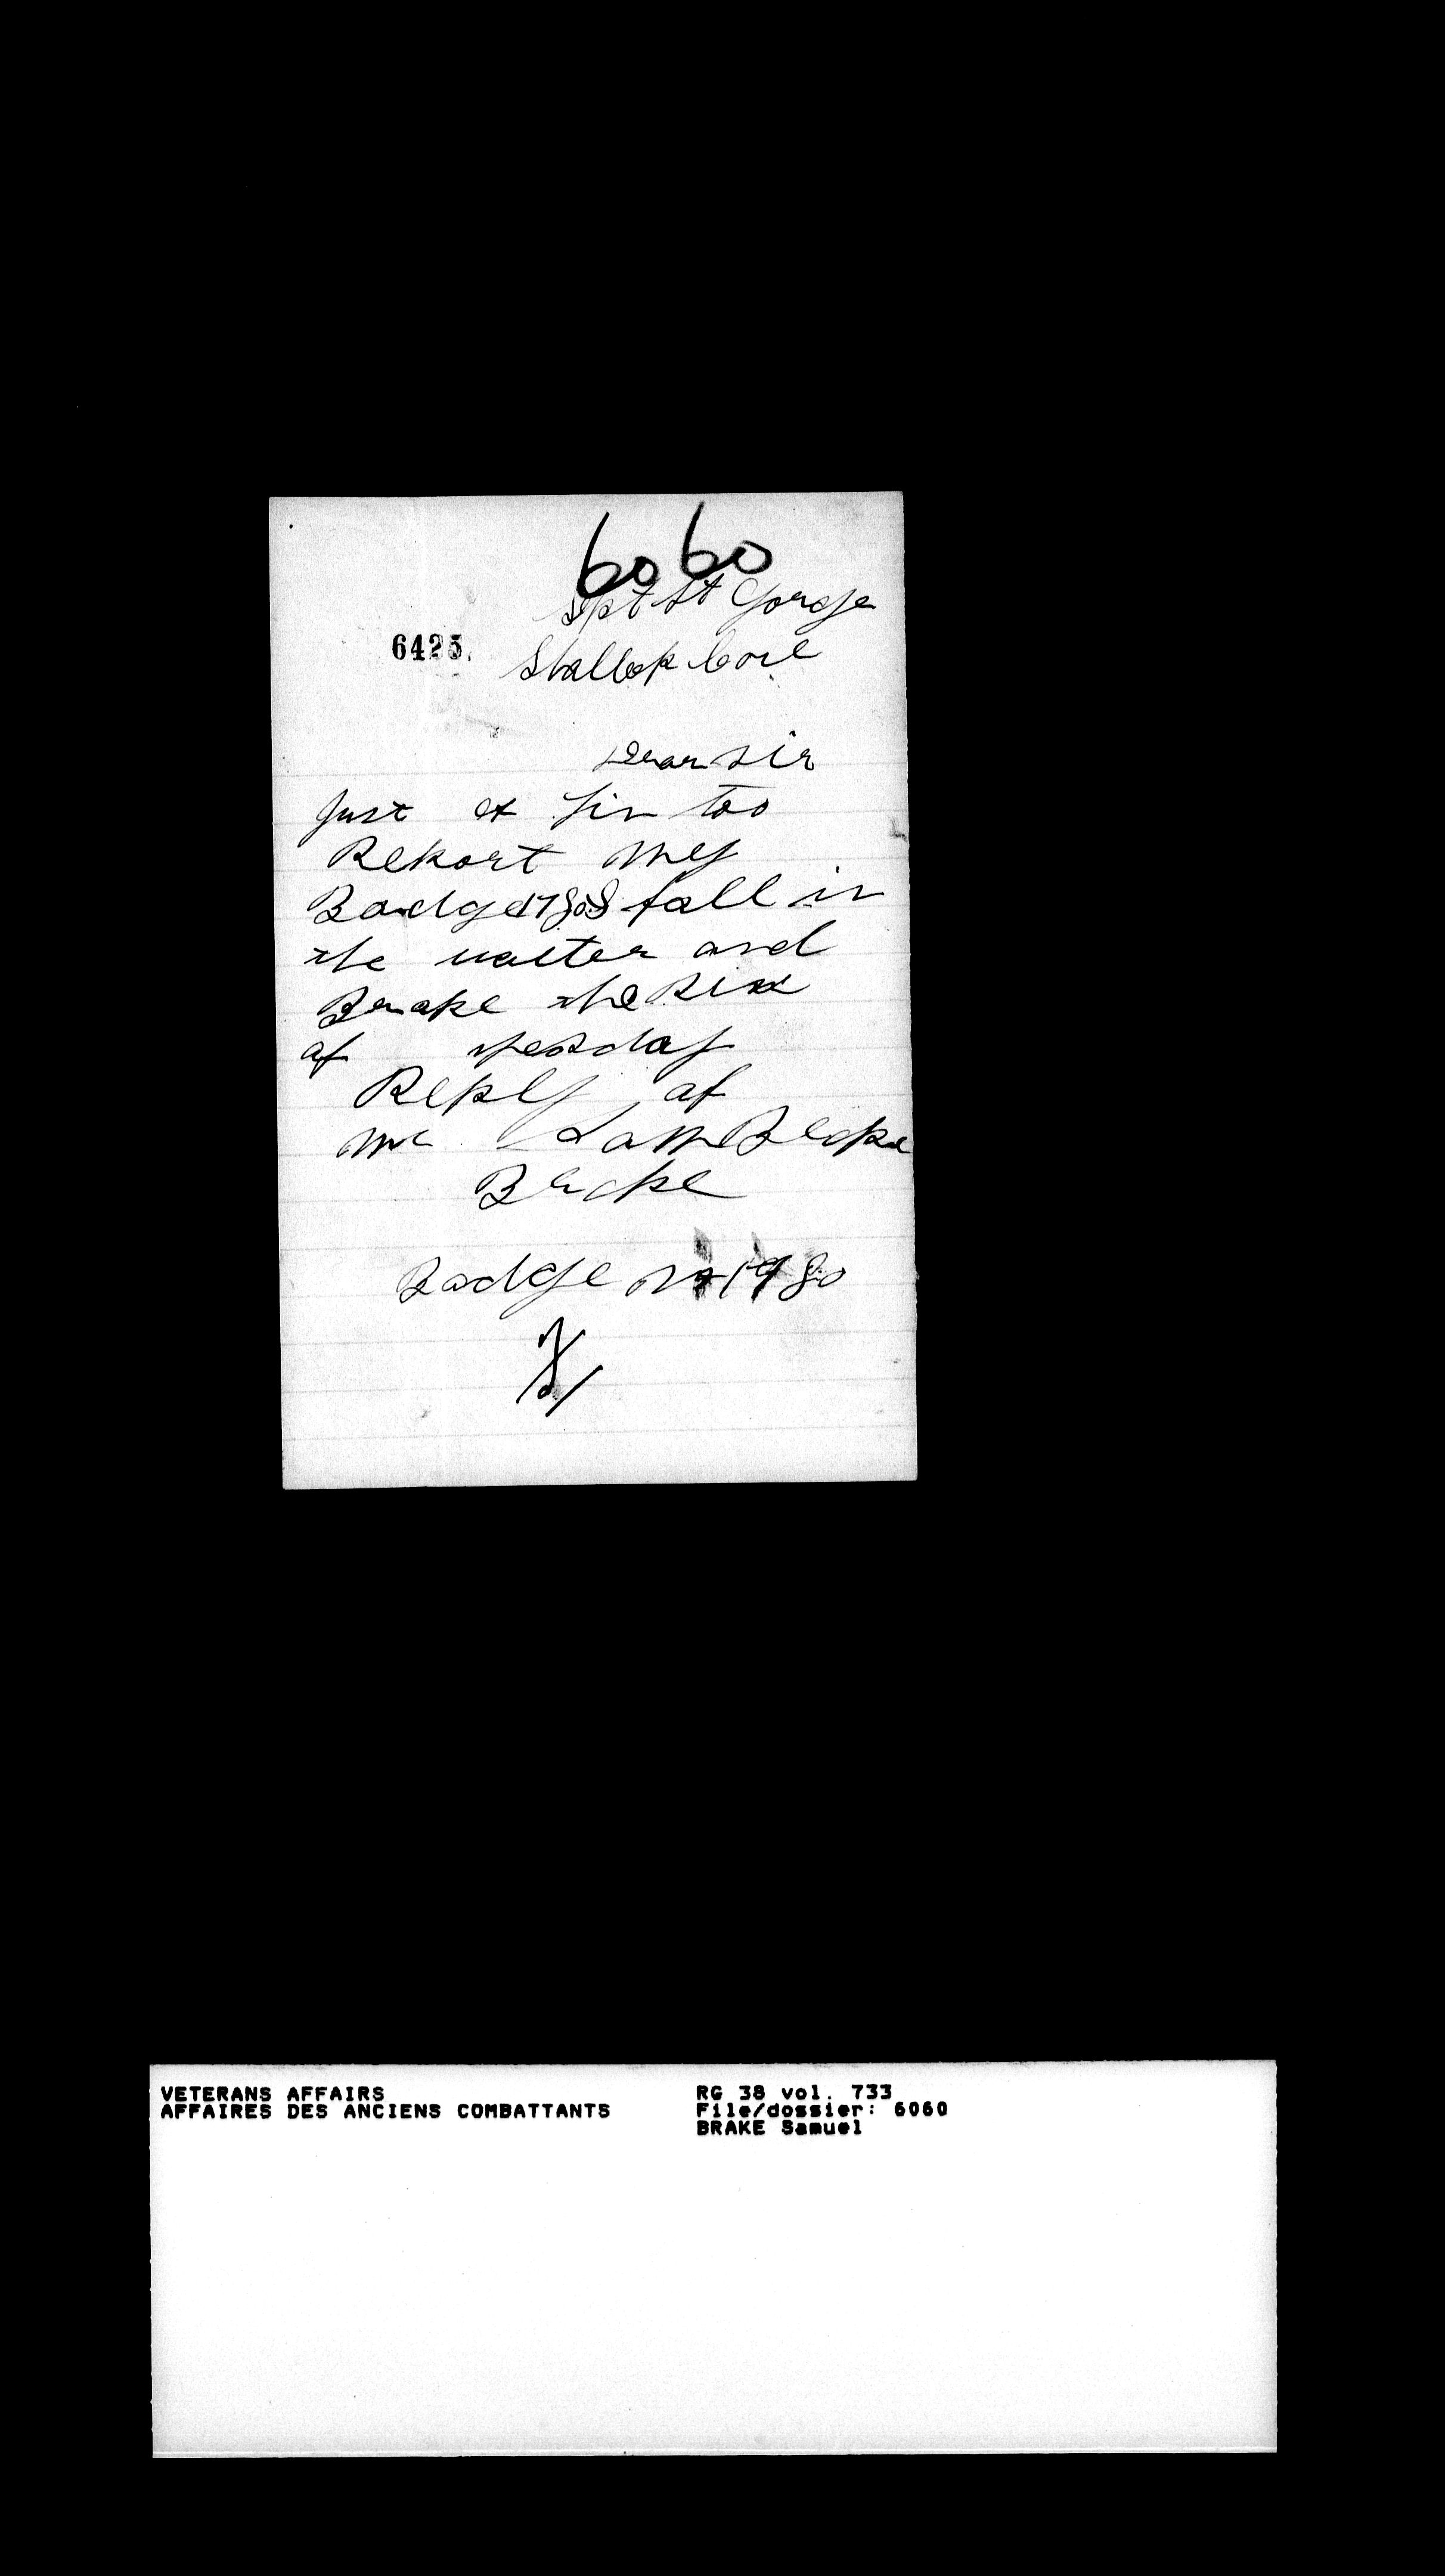 6060
St Gorge
6425.
Shallop Cove
Dear sir
Just a lin too
Report my
Badge 1780 fall in
the watter and
Brake the
of yesday
Reply of
Mr Sam Brake
Brake
Badge no 1780
VETERANS AFFAIRS
AFFAIRES DES ANCIENS COMBATTANTS
RG 38 vol. 733
File/dossier: 6060
BRAKE Samuel